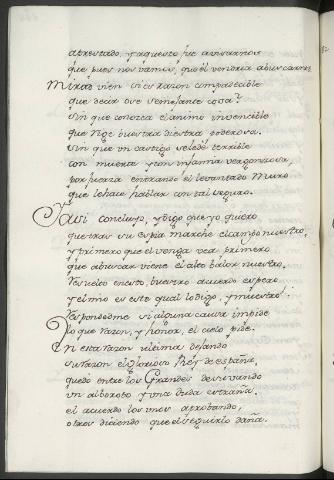 aprestado, y aquesto fue avisarnos
que pues nos vamos, que él vendria a buscarnos
Mirad vien si es razon compadecible
que dexar ose semejante cosa?
sin que conozca el animo invencible
que rige buestra diestra poderosa.
sin que un castigo se le dé terrible
con muerte y con infamia vergonzosa,
por fuerza entrando el levantado Muro
que le haze hablar con tal seguro.
Y assi concluyo, y digo que yo quiero
que tras su espia marche el campo nuestro,
y primero que el venga vea primero
que a buscar viene el alto balor nuestro.
resuelto en esto, buestro acuerdo espero
y el mio es este qual lo digo, y muestro.
Respondedme si alguna causa impide
lo que razon, y honor, el cielo pide.
En esta razon ultima dejando
su razon el glorioso Rey de españa,
quedó entre los Grandes derivando
un alboroto y una duda estraña.
el acuerdo los unos aprobando,
otros diciendo que el seguirlo daña.